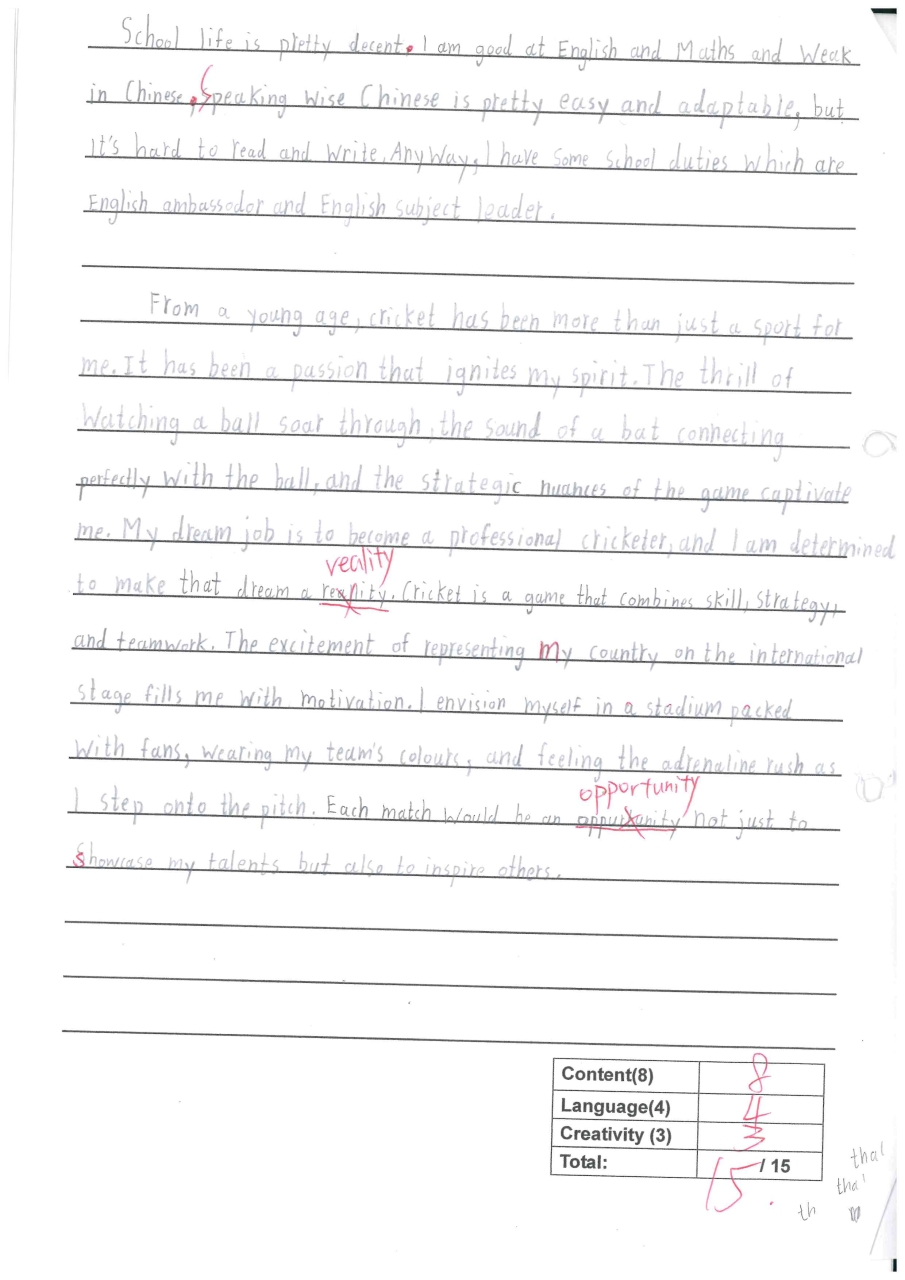 School life is pretty decent. I am good at English and Maths and Weak
in Chinese. Speaking Wise Chinese is pretty easy and adaptable, but
it's hard to read and Write. AnyWay, I have some school duties which are
English ambassodor and English subject leader.
From a young age, cricket has been more than just a sport for
me. It has been a passion that ignites my spirit. The thrill of
Watching a ball soar through, the sound of a bat connecting
perfectly with the ball, and the strategic nuances of the game captivate
me. My dream job is to become a professional cricketer, and I am determined
reality
to make that dream a . Cricket is a game that combines skill, strategy,
and teamwork. The excitement of representing my country on the international
stage fills me with motivation. I envision myself in a stadium packed
With fans, wearing my team's colours, and feeling the adrenaline rush as
opportunity
I step onto the pitch. Each match would be an not just to
showcase my talents but also to inspire others.
Content(8) 8
Language(4) 4
Creativity (3) 3
Total: 15 / 15
that
tha
th